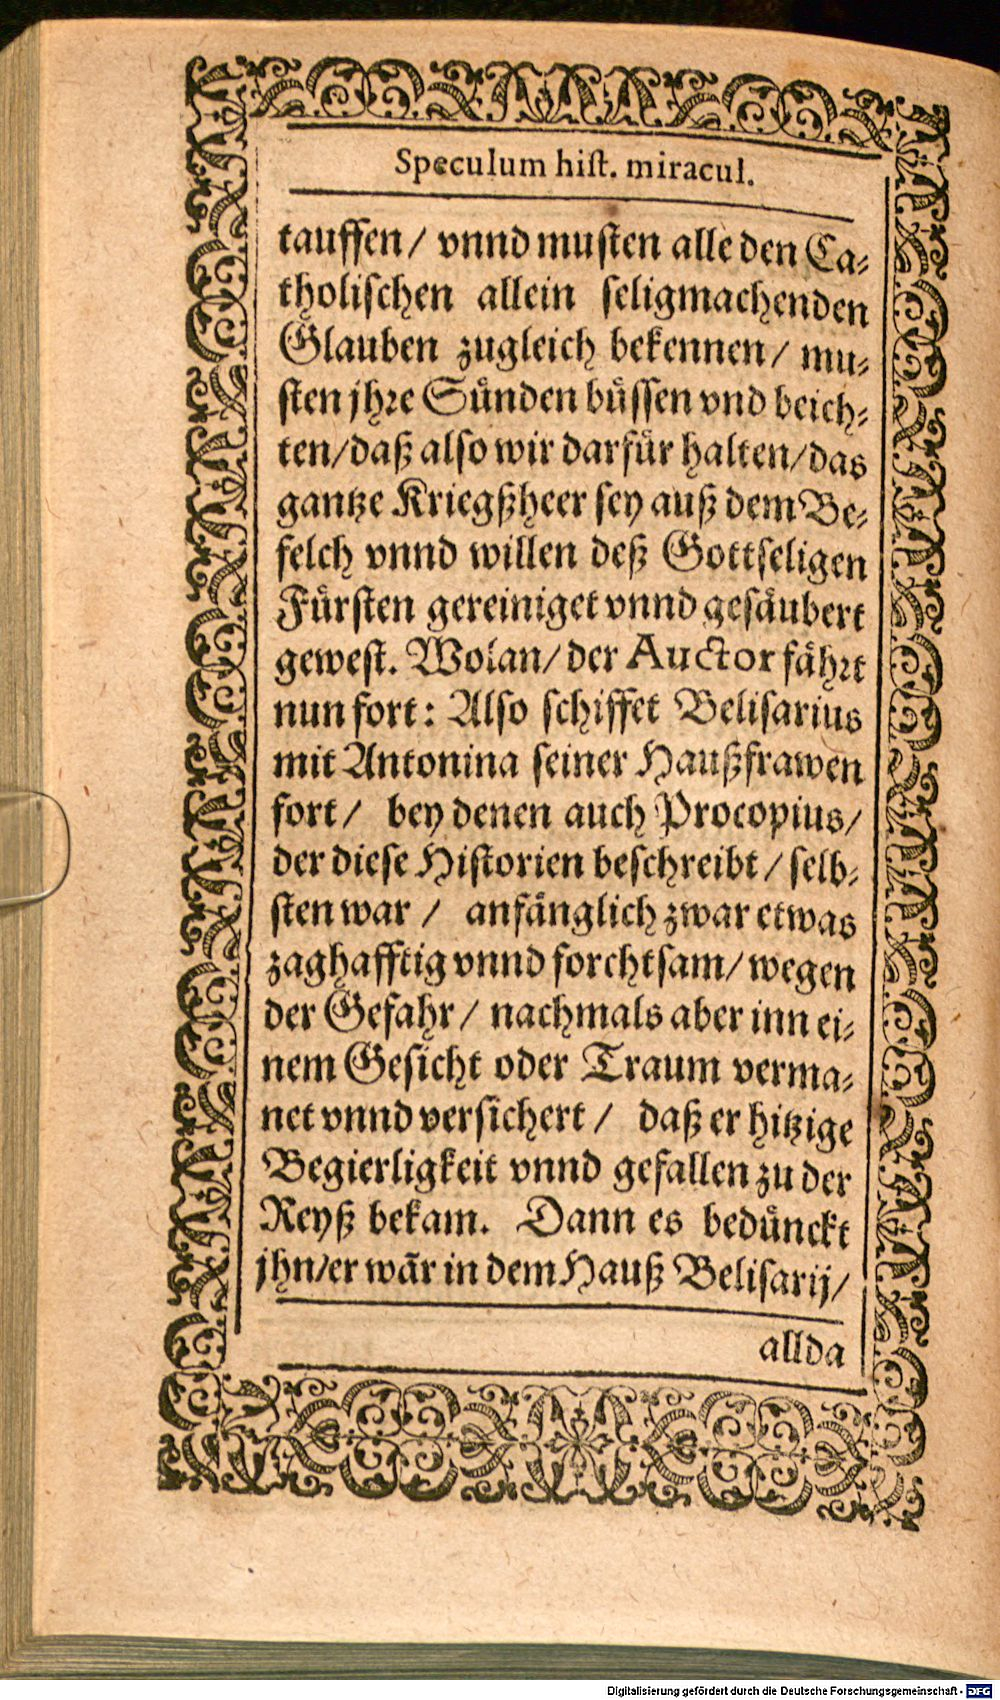 Speculum hist. miracul.
tauffen/ vnnd musten alle den Ca-
tholischen allein seligmachenden
Glauben zugleich bekennen/ mu-
sten jhre Sünden büssen vnd beich-
ten/daß also wir darfür halten/das
gantze Kriegßheer sey auß dem Be-
felch vnnd willen deß Gottseligen
Fürsten gereiniget vnnd gesäubert
gewest. Wolan/ der Auctor fährt
nun fort: Also schiffet Belisarius
mit Antonina seiner Haußfrawen
fort/ bey denen auch Procopius/
der diese Historien beschreibt/ selb-
sten war / anfänglich zwar etwas
zaghafftig vnnd forchtsam/ wegen
der Gefahr/ nachmals aber inn ei-
nem Gesicht oder Traum verma-
net vnnd versichert/ daß er hitzige
Begierligkeit vnnd gefallen zu der
Reyß bekam. Dann es bedünckt
jhn/er wär in dem Hauß Belisarij/
allda
Digitalisierung gefördert durch die Deutsche Forschungsgemeinschaft - DFG